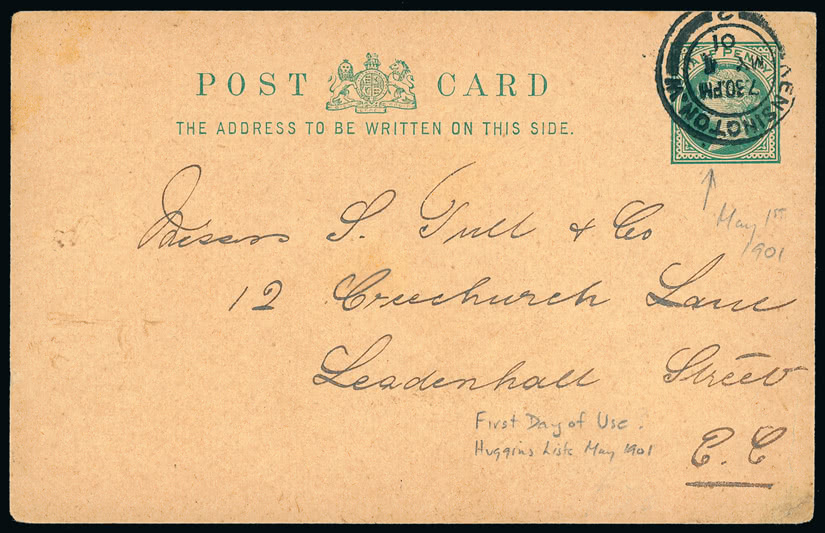 POST CARD
THE ADDRESS TO BE WRITTEN ON THIS SIDE.
HALF PENNY
KENSINGTON.W
7.30.PM
01
2
May 1st
1901
Messrs S. Tull & Co
12 Creechurch Lane
Leadenhall Street
First Day of Use.
Huggins Lists May 1901
E.C